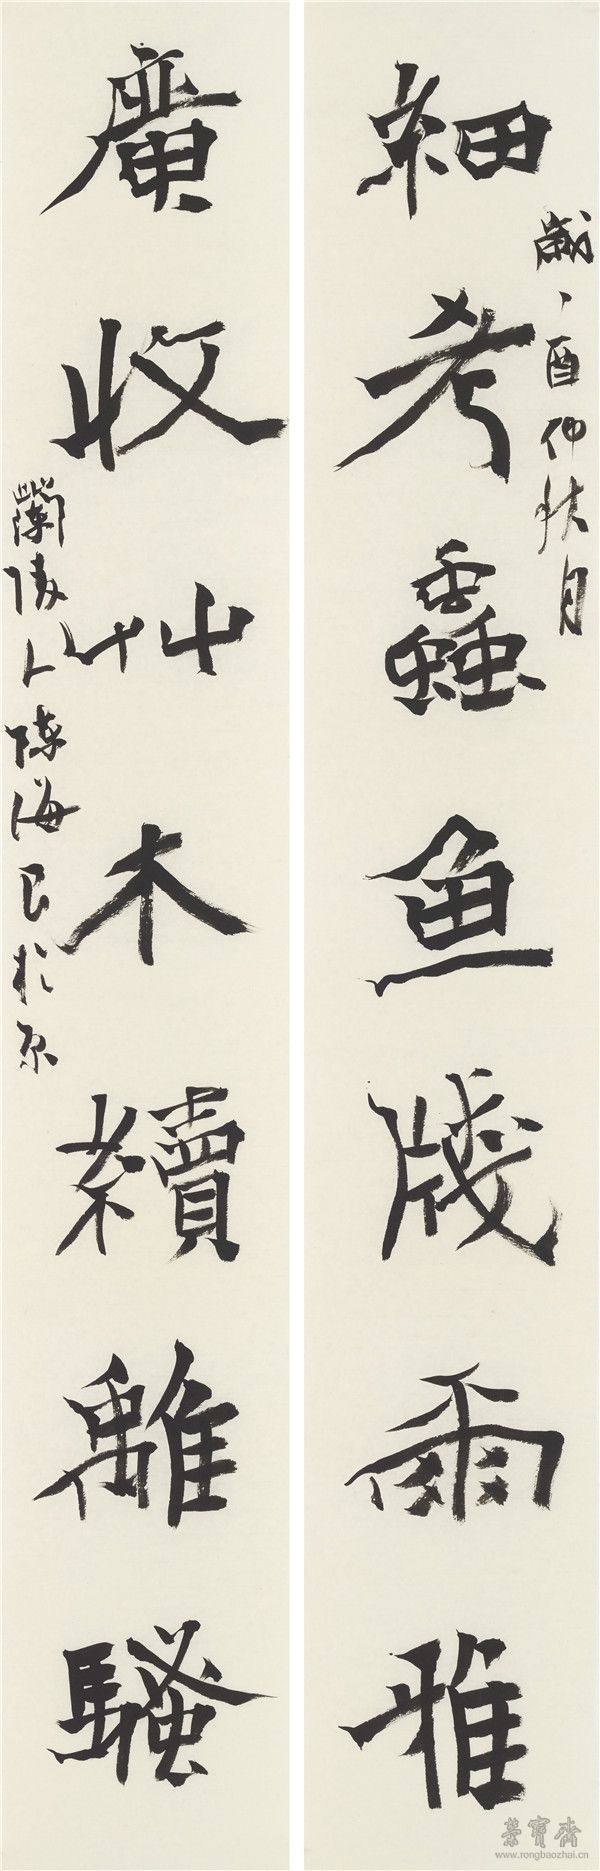 細考蟲魚牋爾雅
歲丁酉仲秋月
廣收艸木續離騷
蘭陵人陳海良於京
榮寶齋
www.rongbaozhai.cn